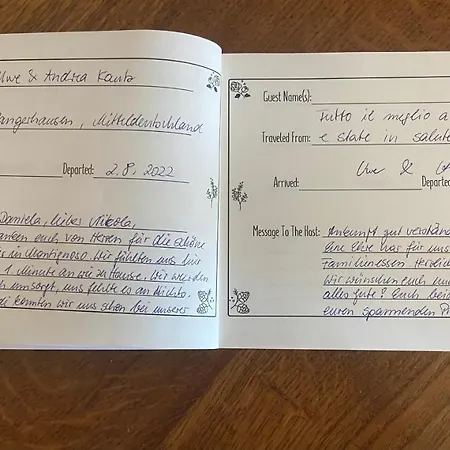 Uwe & Andrea Kautz
angerhausen, Mitteldeutschland
Departed: 2.8.2022
Daniela, lieber Nikola,
anken euch von Herzen für die schöne
in Montignoso. Wir fühlten uns hier
1 Minute an wie zu Hause. Wir wurden
umsorgt, uns fehlte es an Nichts.
di konnten wir uns schon bei unserer
Guest Name(s):
Tutto il meglio a
Traveled From: e state in salute
Uwe & A
Arrived: Departed
Message To The Host: Ankunft gut verständ
Eine Ehre war für uns
Familienessen Herzlich
Wir wünschen euch nu
alles gute! Euch beid
euren spannenden P